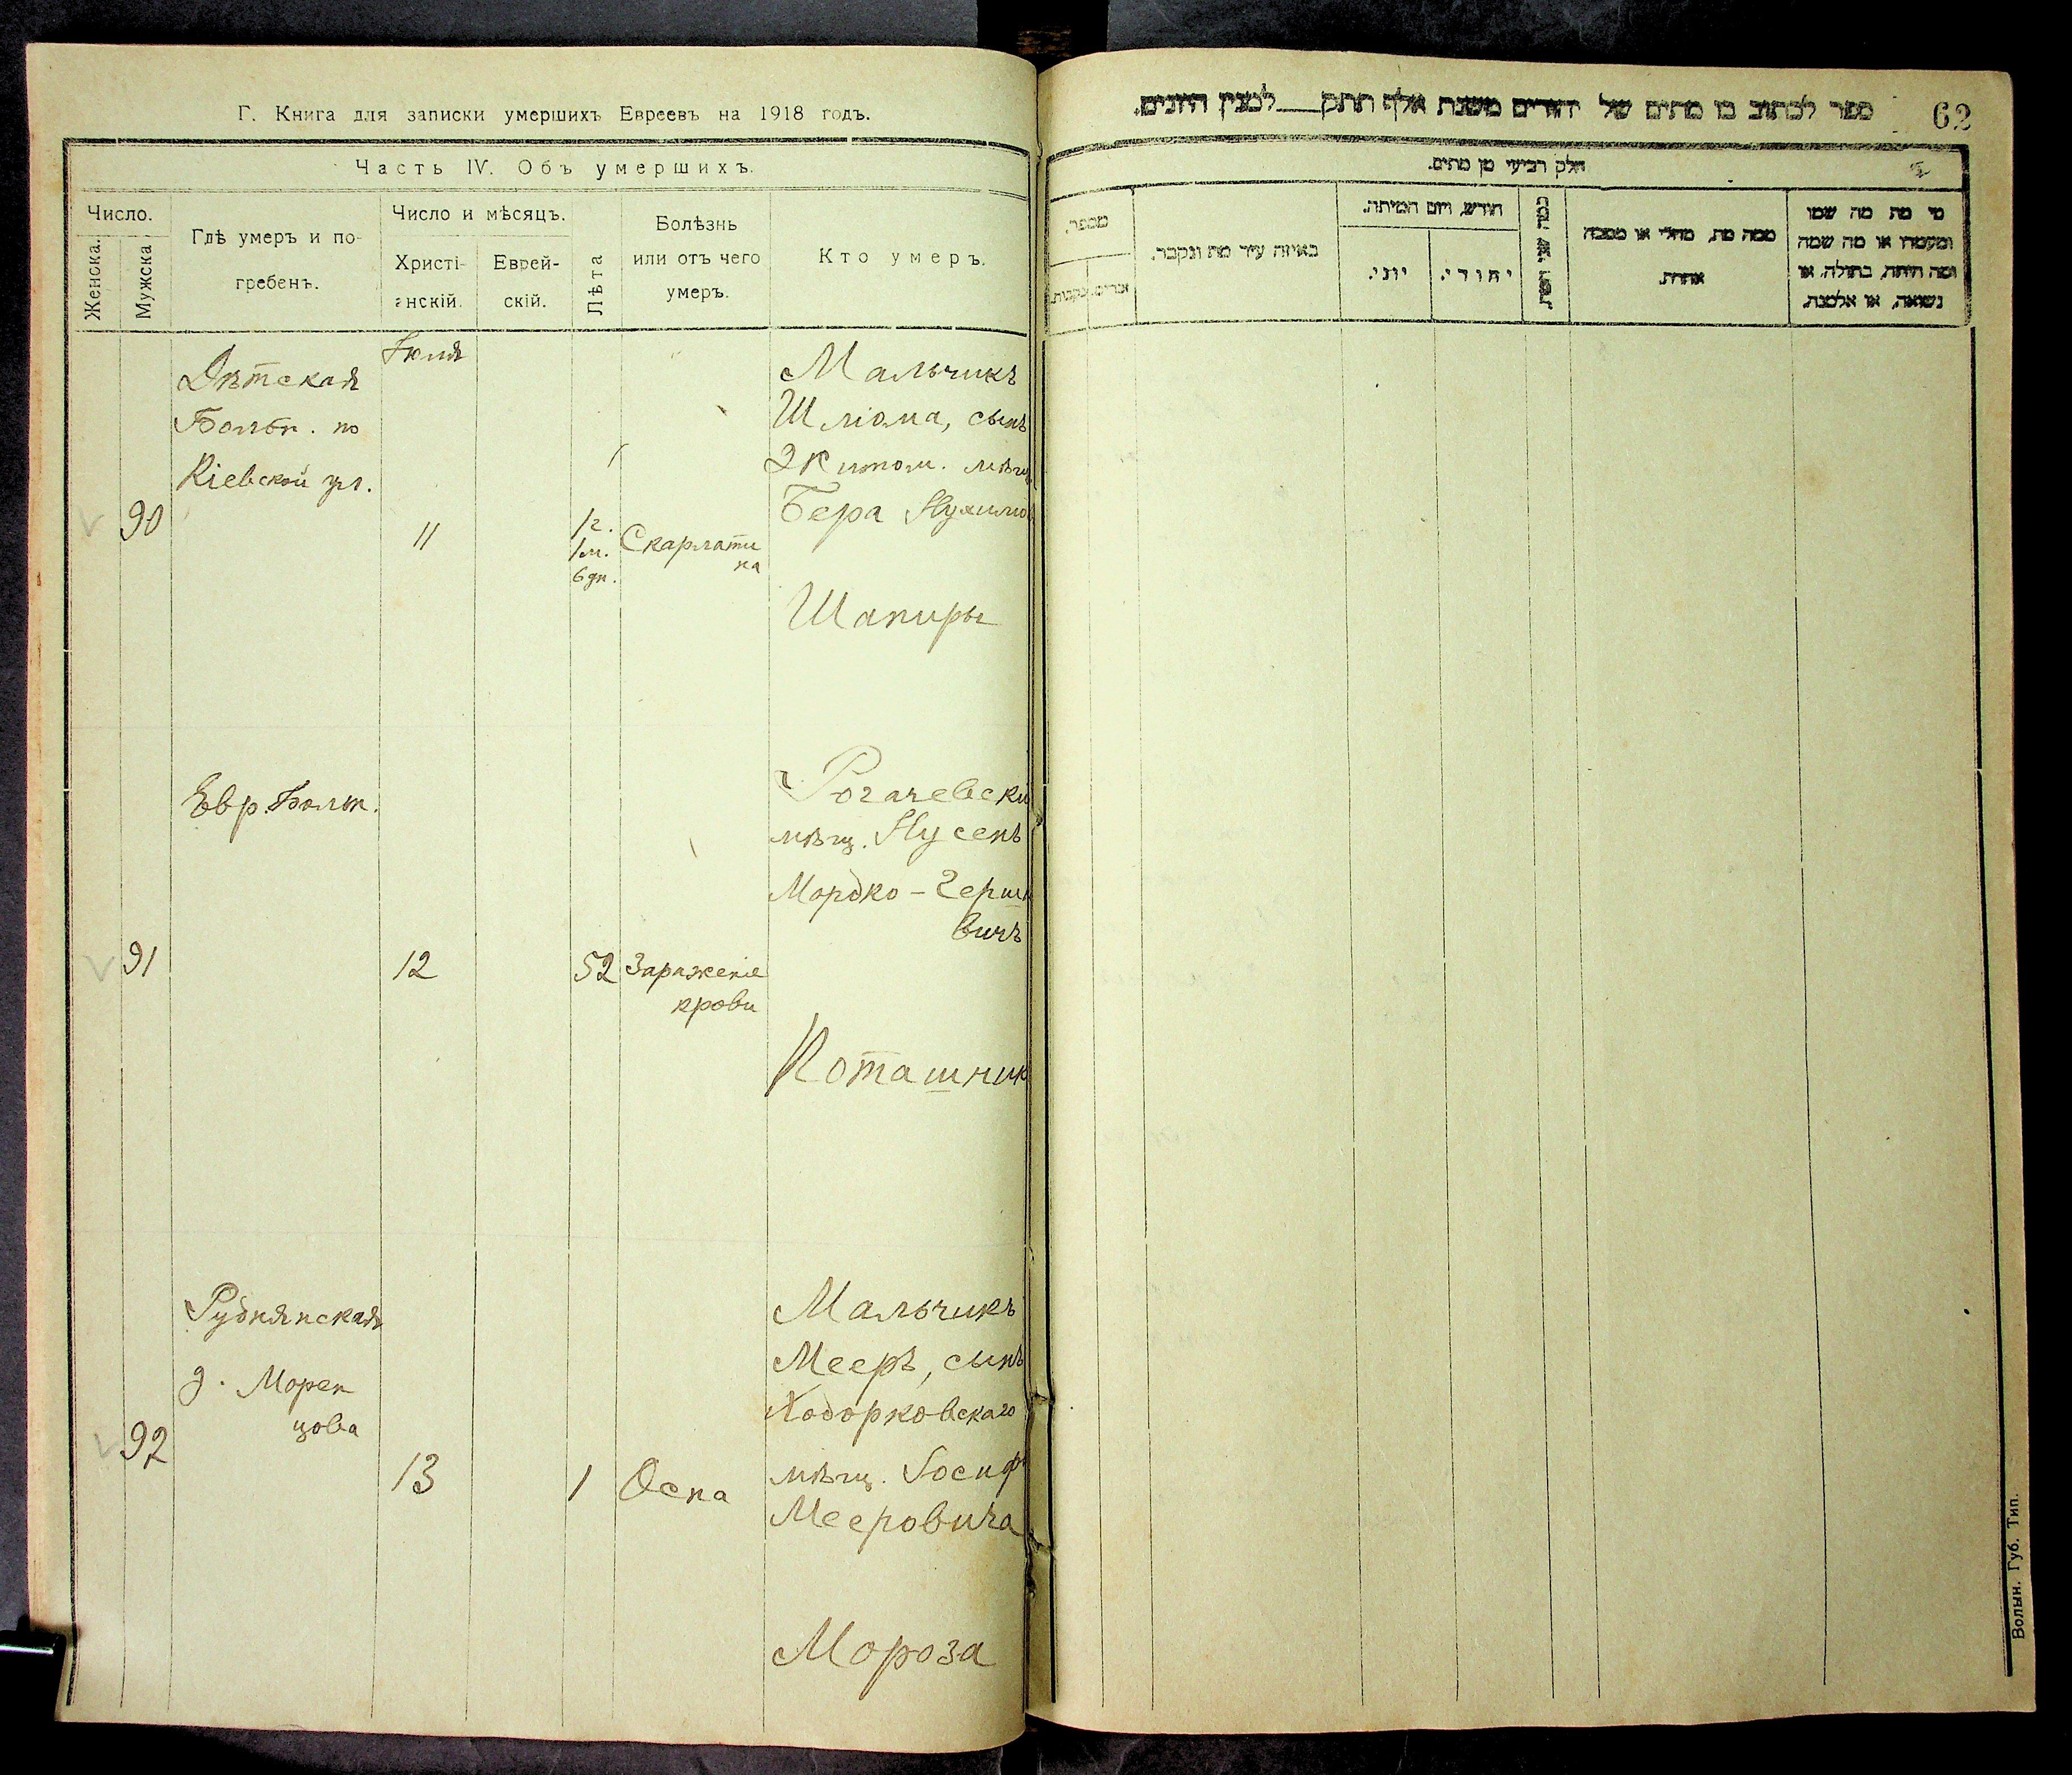 Г. Книга для записки умершихъ Евреевъ на 1918 годъ.
Часть IV. Объ умершихъ.
Число.
Женска.
Мужска
Гдѣ умеръ и по-
гребенъ.
Число и мѣсяцъ.
Христі-
анскій.
Еврей-
скій.
Лѣта
Болѣзнь
или отъ чего
умеръ.
Кто умеръ.
90
Дѣтская
Больн. по
Кіевской ул.
Іюля
11
1 г.
1 м.
6 дн.
Скарлати
на
Мальчикъ
Шліома, сынъ
Житом. мѣщ
Бера
Шапиры
91
Евр. Больн.
12
52
Зараженіе
крови
Рогачевскі
мѣщ. Нусенъ
Мордко-Герш
вичъ
Поташник
92
Руднянская
д. Морен
цова
13
1
Оспа
Мальчикъ
Мееръ, сынъ
Ходорковскаго
мѣщ. Іосиф
Мееровича
Мороза
ספר לכתוב בו מתים של יהודים משנת אלף תתק___למנין היונים.
62
חלק רביעי מן מתים.
מספר.
זכרים.
נקבות.
באיזה עיר מת ונקבר.
חודש, ויום המיתה.
יוני.
יהודי.
כמה שני חייו.
ממה מת, מחלי או מסבה
אחרת.
מי מת מה שמו
ומעמדו או מה שמה
ומה היתה, בתולה, או
נשואה, או אלמנה.
Волын. Губ. Тип.